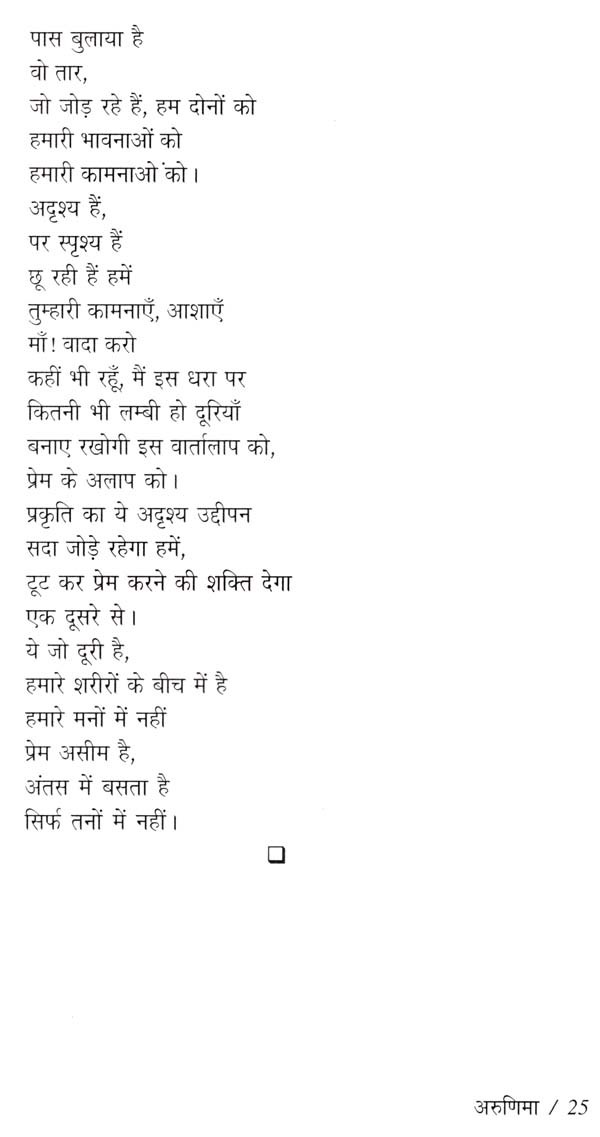 पास बुलाया है
वो तार,
जो जोड़ रहे हैं, हम दोनों को
हमारी भावनाओं को
हमारी कामनाओं को।
अदृश्य हैं,
पर स्पृश्य हैं
छू रही हैं हमें
तुम्हारी कामनाएँ, आशाएँ
माँ! वादा करो
कहीं भी रहूँ, मैं इस धरा पर
कितनी भी लम्बी हो दूरियाँ
बनाए रखोगी इस वार्तालाप को,
प्रेम के अलाप को।
प्रकृति का ये अदृश्य उद्दीपन
सदा जोड़े रहेगा हमें,
टूट कर प्रेम करने की शक्ति देगा
एक दूसरे से।
ये जो दूरी है,
हमारे शरीरों के बीच में है
हमारे मनों में नहीं
प्रेम असीम है,
अंतस में बसता है
सिर्फ तनों में नहीं।
अरुणिमा / 25